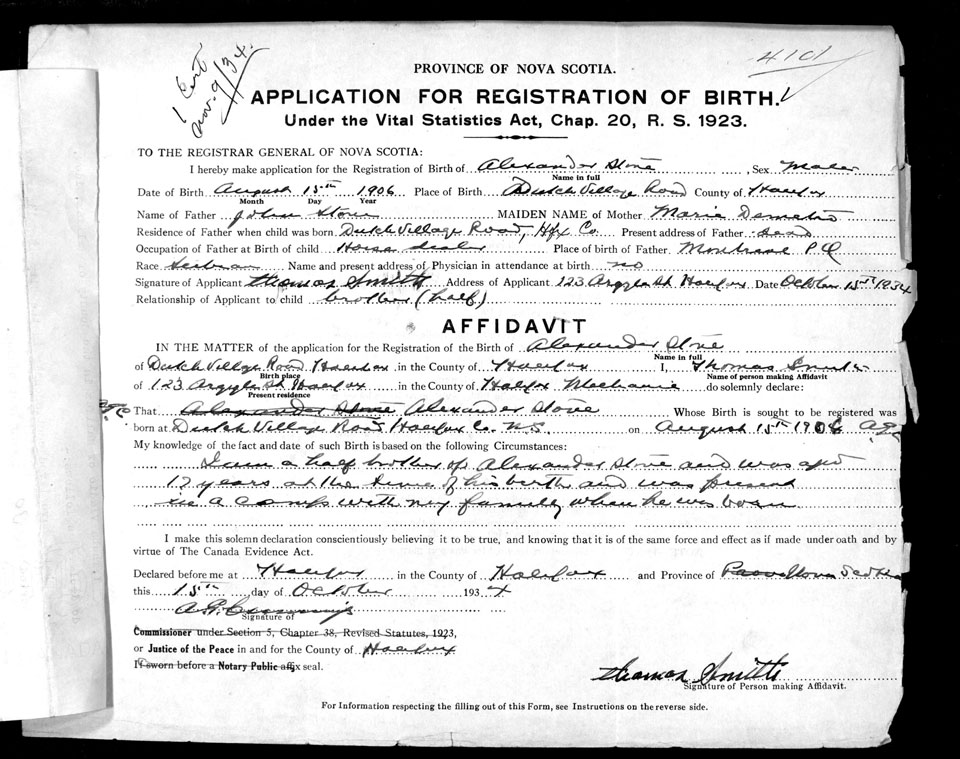 1 Cert
Nov. 9/34.
4101
PROVINCE OF NOVA SCOTIA.
APPLICATION FOR REGISTRATION OF BIRTH.
Under the Vital Statistics Act, Chap. 20, R. S. 1923.
TO THE REGISTRAR GENERAL OF NOVA SCOTIA:
I hereby make application for the Registration of Birth of Alexander Stone Sex Male
Name in full
Date of Birth August 15th 1906 Place of Birth Dutch Village Road County of Halifax
Month Day Year
Name of Father John Stone MAIDEN NAME of Mother Maria Demetro
Residence of Father when child was born Dutch Village Road, Hfx Co. Present address of Father dead
Occupation of Father at Birth of child Horse dealer Place of birth of Father Montreal P Q
Race Serbian Name and present address of Physician in attendance at birth no
Signature of Applicant Thomas Smith Address of Applicant 123 Argyle St. Halifax Date October 15th 1934
Relationship of Applicant to child brother (half)
AFFIDAVIT
IN THE MATTER of the application for the Registration of the Birth of Alexander Stone
Name in full
of Dutch Village Road Halifax in the County of Halifax I, Thomas Smith
Birth place Name of person making Affidavit
of 123 Argyle St. Halifax in the County of Halifax Mechanic do solemnly declare:
Present residence
That Alexander Stone Alexander Stone Whose Birth is sought to be registered was
born at Dutch Village Road Halifax Co. N.S. on August 15th 1906
My knowledge of the fact and date of such Birth is based on the following Circumstances:
I am a half brother of Alexander Stone and was aged
12 years at the time of his birth and was present
in a camp with my family when he was born
I make this solemn declaration conscientiously believing it to be true, and knowing that it is of the same force and effect as if made under oath and by
virtue of The Canada Evidence Act.
Declared before me at Halifax in the County of Halifax and Province of Nova Scotia
this 15th day of October 1934
Signature of
Commissioner under Section 5, Chapter 38, Revised Statutes, 1923,
or Justice of the Peace in and for the County of Halifax
If sworn before a Notary Public affix seal.
Thomas Smith
Signature of Person making Affidavit.
For Information respecting the filling out of this Form, see Instructions on the reverse side.